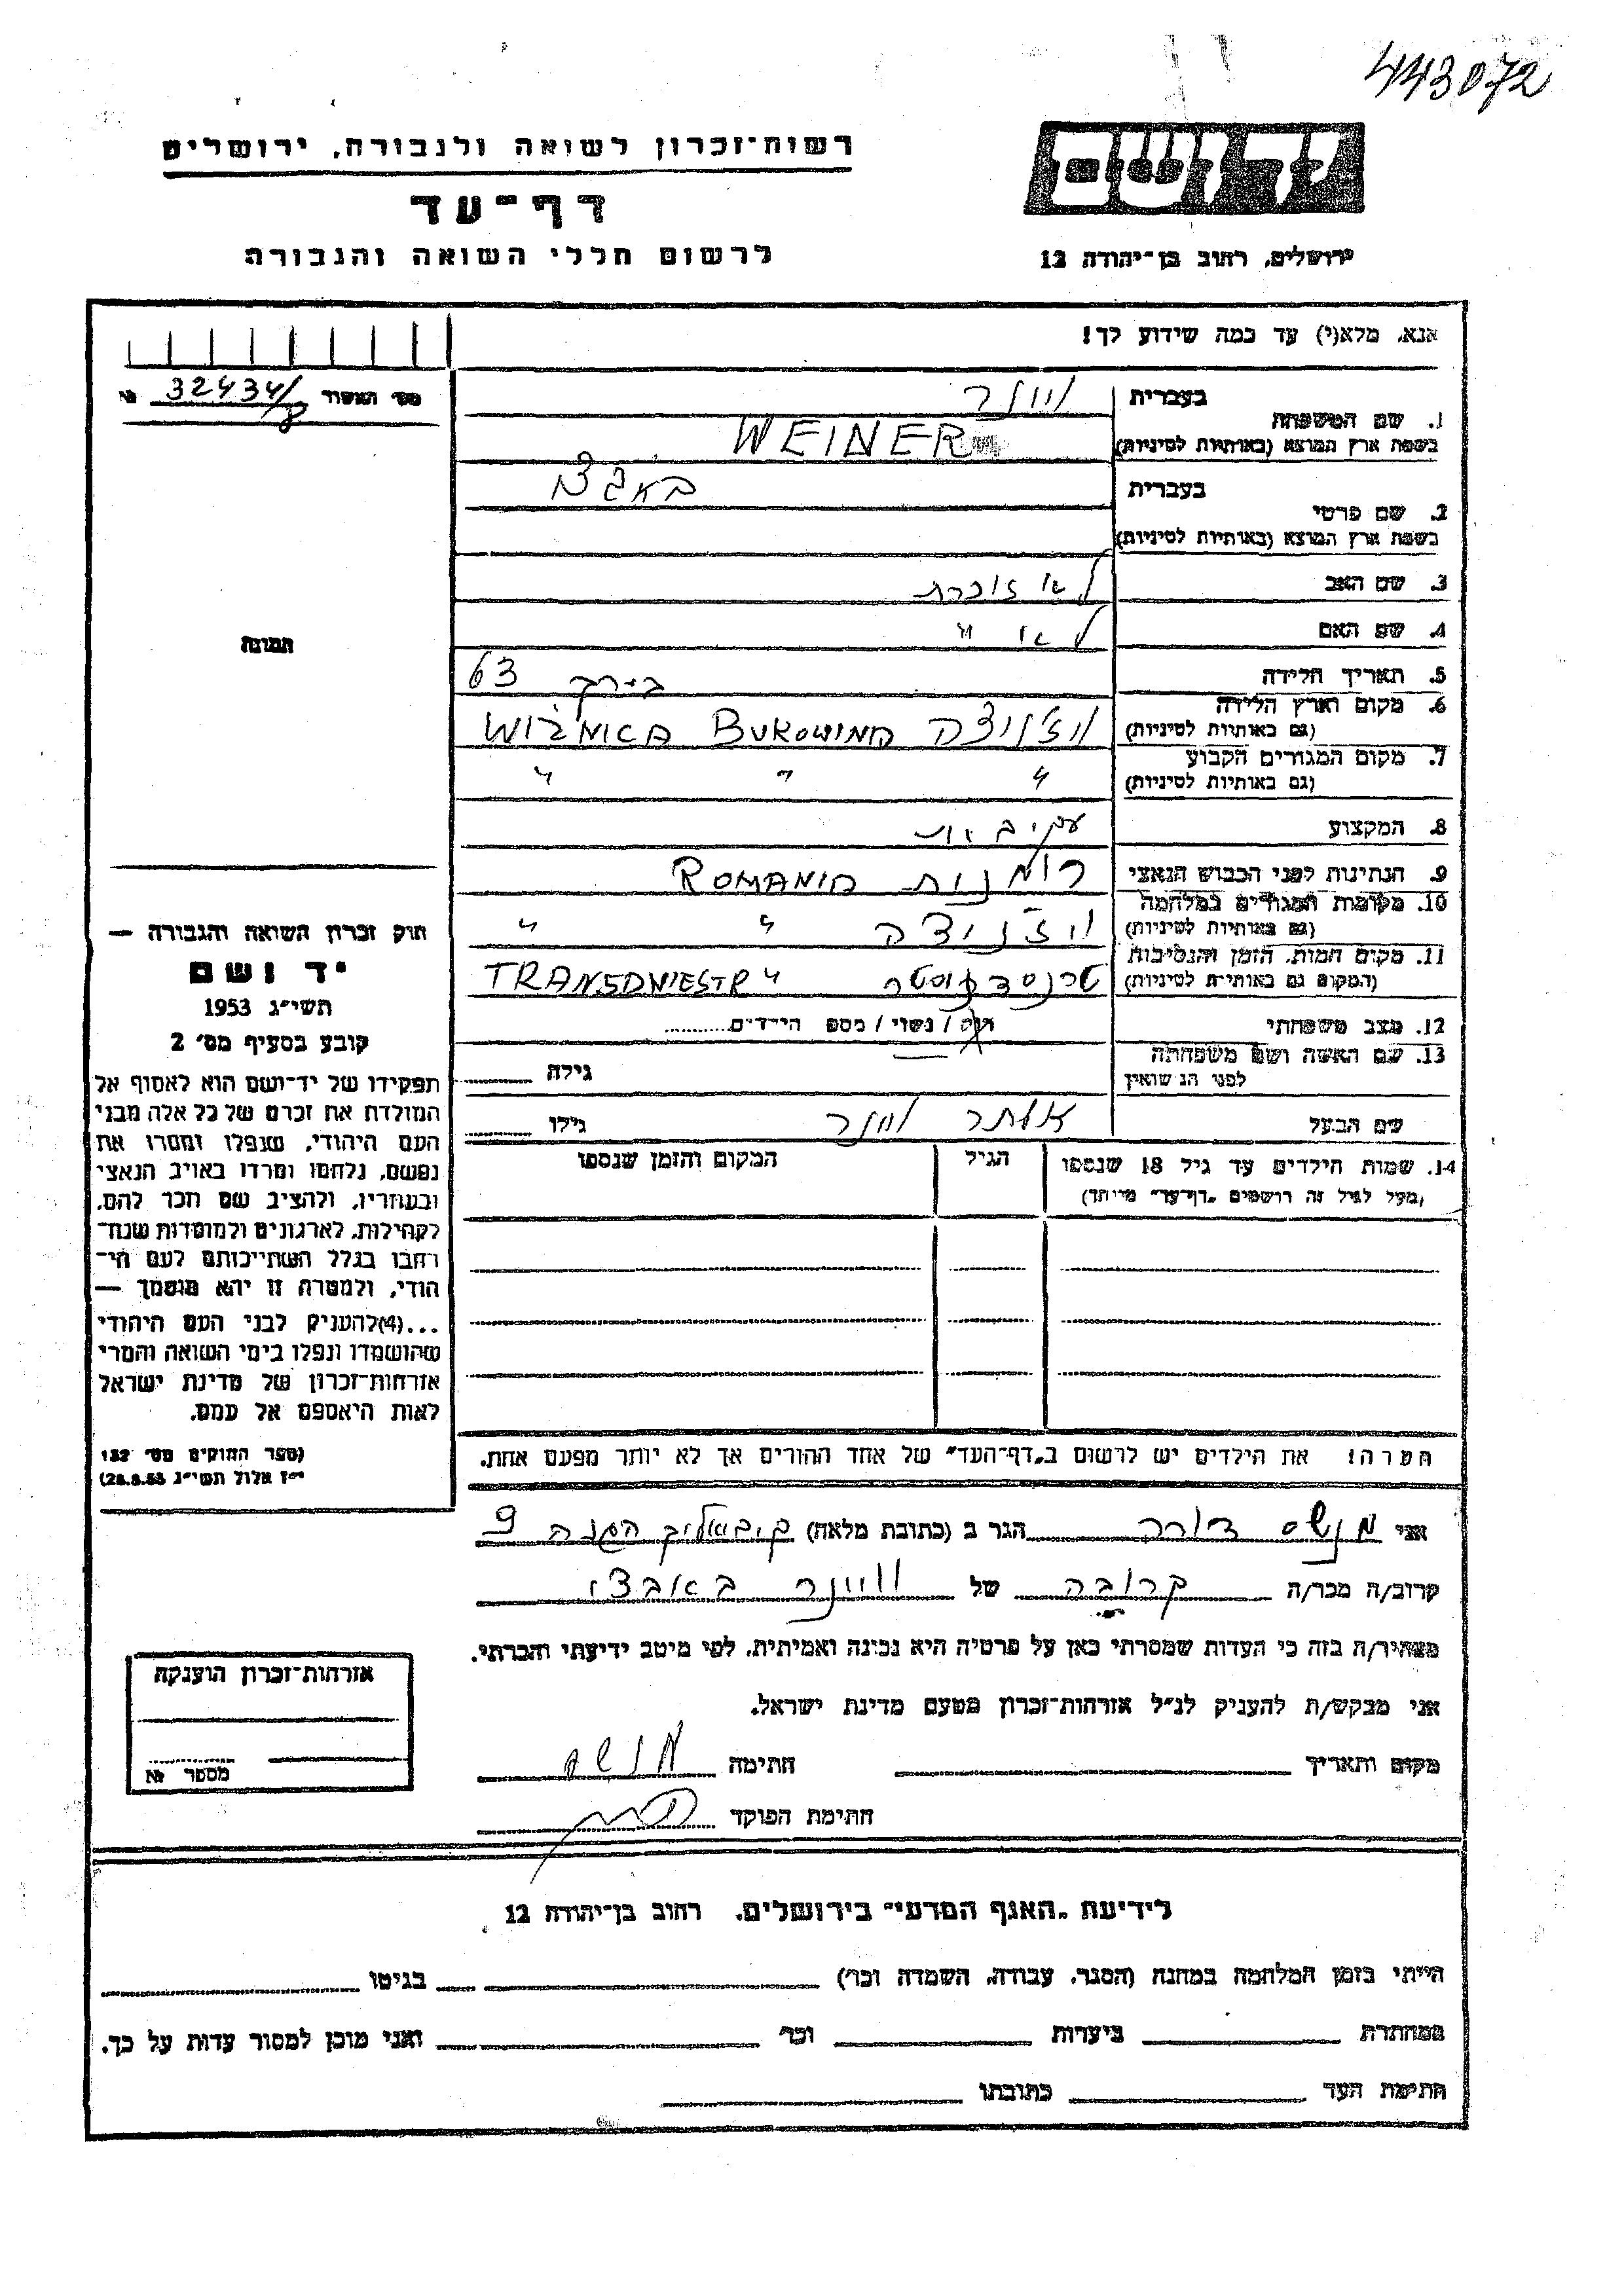 443072
רשות־זכרון לשואה ולגבורה, ירושלים
דף־עד
לרשום חללי השואה והגבורה
ירושלים, רחוב בן־יהודה 12
אנא, מלא(י) עד כמה שידוע לך!
מס' האשור 32434/8 №
1. שם המשפחה
בעברית
ווינר
בשפת ארץ המוצא (באותיות לטיניות)
WEINER
2. שם פרטי
בעברית
בשפת ארץ המוצא (באותיות לטיניות)
3. שם האב לא זוכרת
4. שם האם לא "
5. תאריך הלידה בערך 63
6. מקום וארץ הלידה
(גם באותיות לטיניות)
ויז'ניצה BUKOWINA WIŻNICA
7. מקום המגורים הקבוע
(גם באותיות לטיניות)
" " "
8. המקצוע
9. הנתינות לפני הכבוש הנאצי
רומנית ROMANIA
10. מקומות המגורים במלחמה
(גם באותיות לטיניות)
ויז'ניצה " "
11. מקום המות, הזמן והנסיבות
(המקום גם באותיות לטיניות)
טרנסדניסטר TRANSDNIESTR "
12. מצב משפחתי
רוק / נשוי / מספ הילדים
13. שם האשה ושם משפחתה
לפני הנשואין
גילה
שם הבעל ווינר
גילו
14. שמות הילדים עד גיל 18 שנספו
(מעל לגיל זה רושמים "דף־עד" מיוחד)
הגיל
המקום והזמן שנספו
הערה! את הילדים יש לרשום ב"דף־העד" של אחד ההורים אך לא יותר מפעם אחת.
תמונה
חוק זכרון השואה והגבורה —
יד ושם
תשי"ג 1953
קובע בסעיף מס' 2
תפקידו של יד־ושם הוא לאסוף אל
המולדת את זכרם של כל אלה מבני
העם היהודי, שנפלו ומסרו את
נפשם, נלחמו ומרדו באויב הנאצי
ובעוזריו, ולהציב שם וזכר להם,
לקהילות, לארגונים ולמוסדות שנח־
רבו בגלל השתייכותם לעם הי־
הודי, ולמטרה זו יהא מוסמך —
...(4)להעניק לבני העם היהודי
שהושמדו ונפלו בימי השואה והמרי
אזרחות־זכרון של מדינת ישראל
לאות היאספם אל עמם.
(ספר החוקים מס' 132
י"ז אלול תשי"ג 28.8.53)
אני מנשס דורה הגר ב (כתובת מלאה) ההגנה 9
קרוב/ה מכר/ה קרובה של וויינר באבצי
מצהיר/ה בזה כי העדות שמסרתי כאן על פרטיה היא נכונה ואמיתית, לפי מיטב ידיעתי והכרתי.
אני מבקש/ת להעניק לנ"ל אזרחות־זכרון מטעם מדינת ישראל.
מקום ותאריך
חתימה מנשס
חתימת הפוקד
אזרחות־זכרון הוענקה
מספר №
לידיעת "האגף המדעי" בירושלים, רחוב בן־יהודה 12
הייתי בזמן המלחמה במחנה (הסגר, עבודה, השמדה וכו') בגיטו
במחתרת ביערות וכו' ואני מוכן למסור עדות על כך.
חתימת העד כתובתו